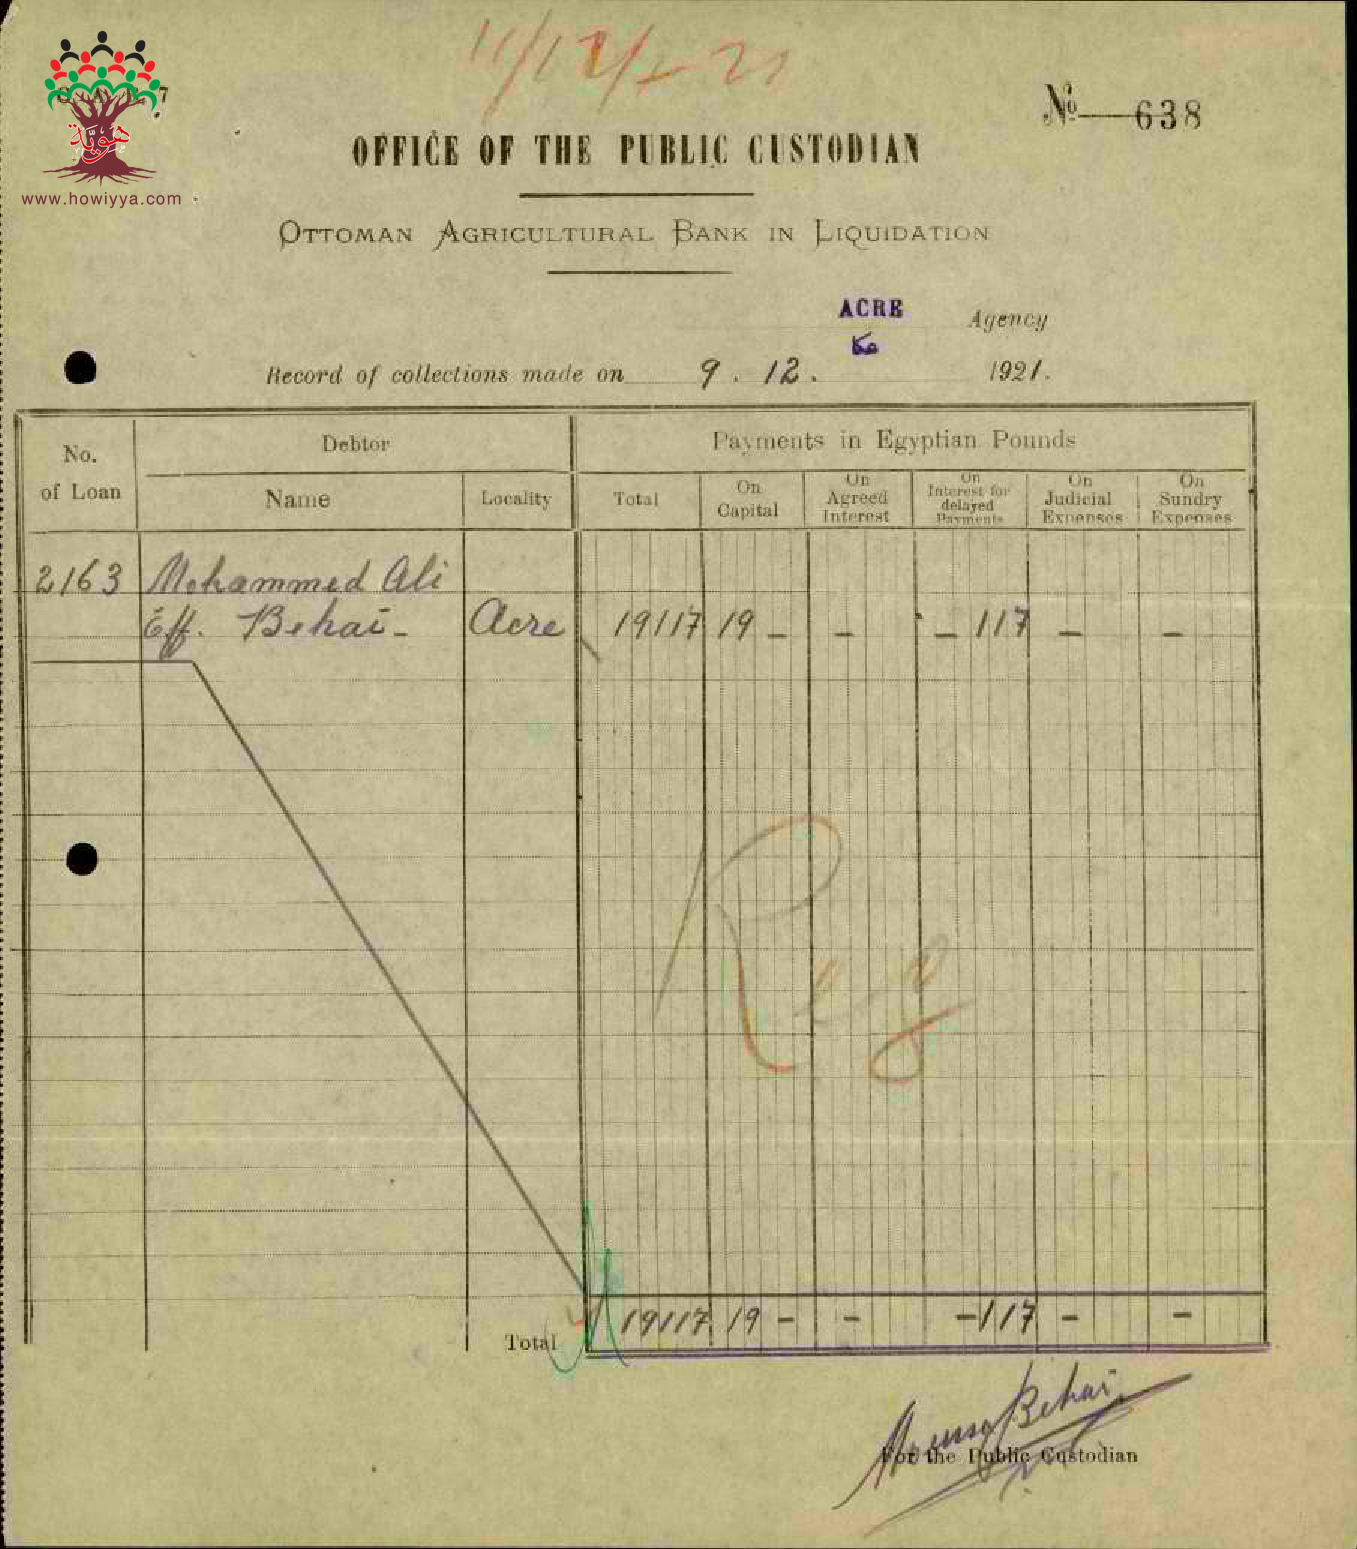 11/12/21
هَوِيَّة
www.howiyya.com
7
№ 638
OFFICE OF THE PUBLIC CUSTODIAN
OTTOMAN AGRICULTURAL BANK IN LIQUIDATION
ACRE Agency
عكا
Record of collections made on 9. 12. 1921.
No. of Loan
Debtor
Payments in Egyptian Pounds
Name Locality Total On Capital On Agreed Interest On Interest for delayed Payments On Judicial Expenses On Sundry Expenses
2163 Mohammed Ali
Eff. Behai- Acre 19117 19 - - - 117 - -
Total 19117 19 - - - 117 - -
Behai
For the Public Custodian